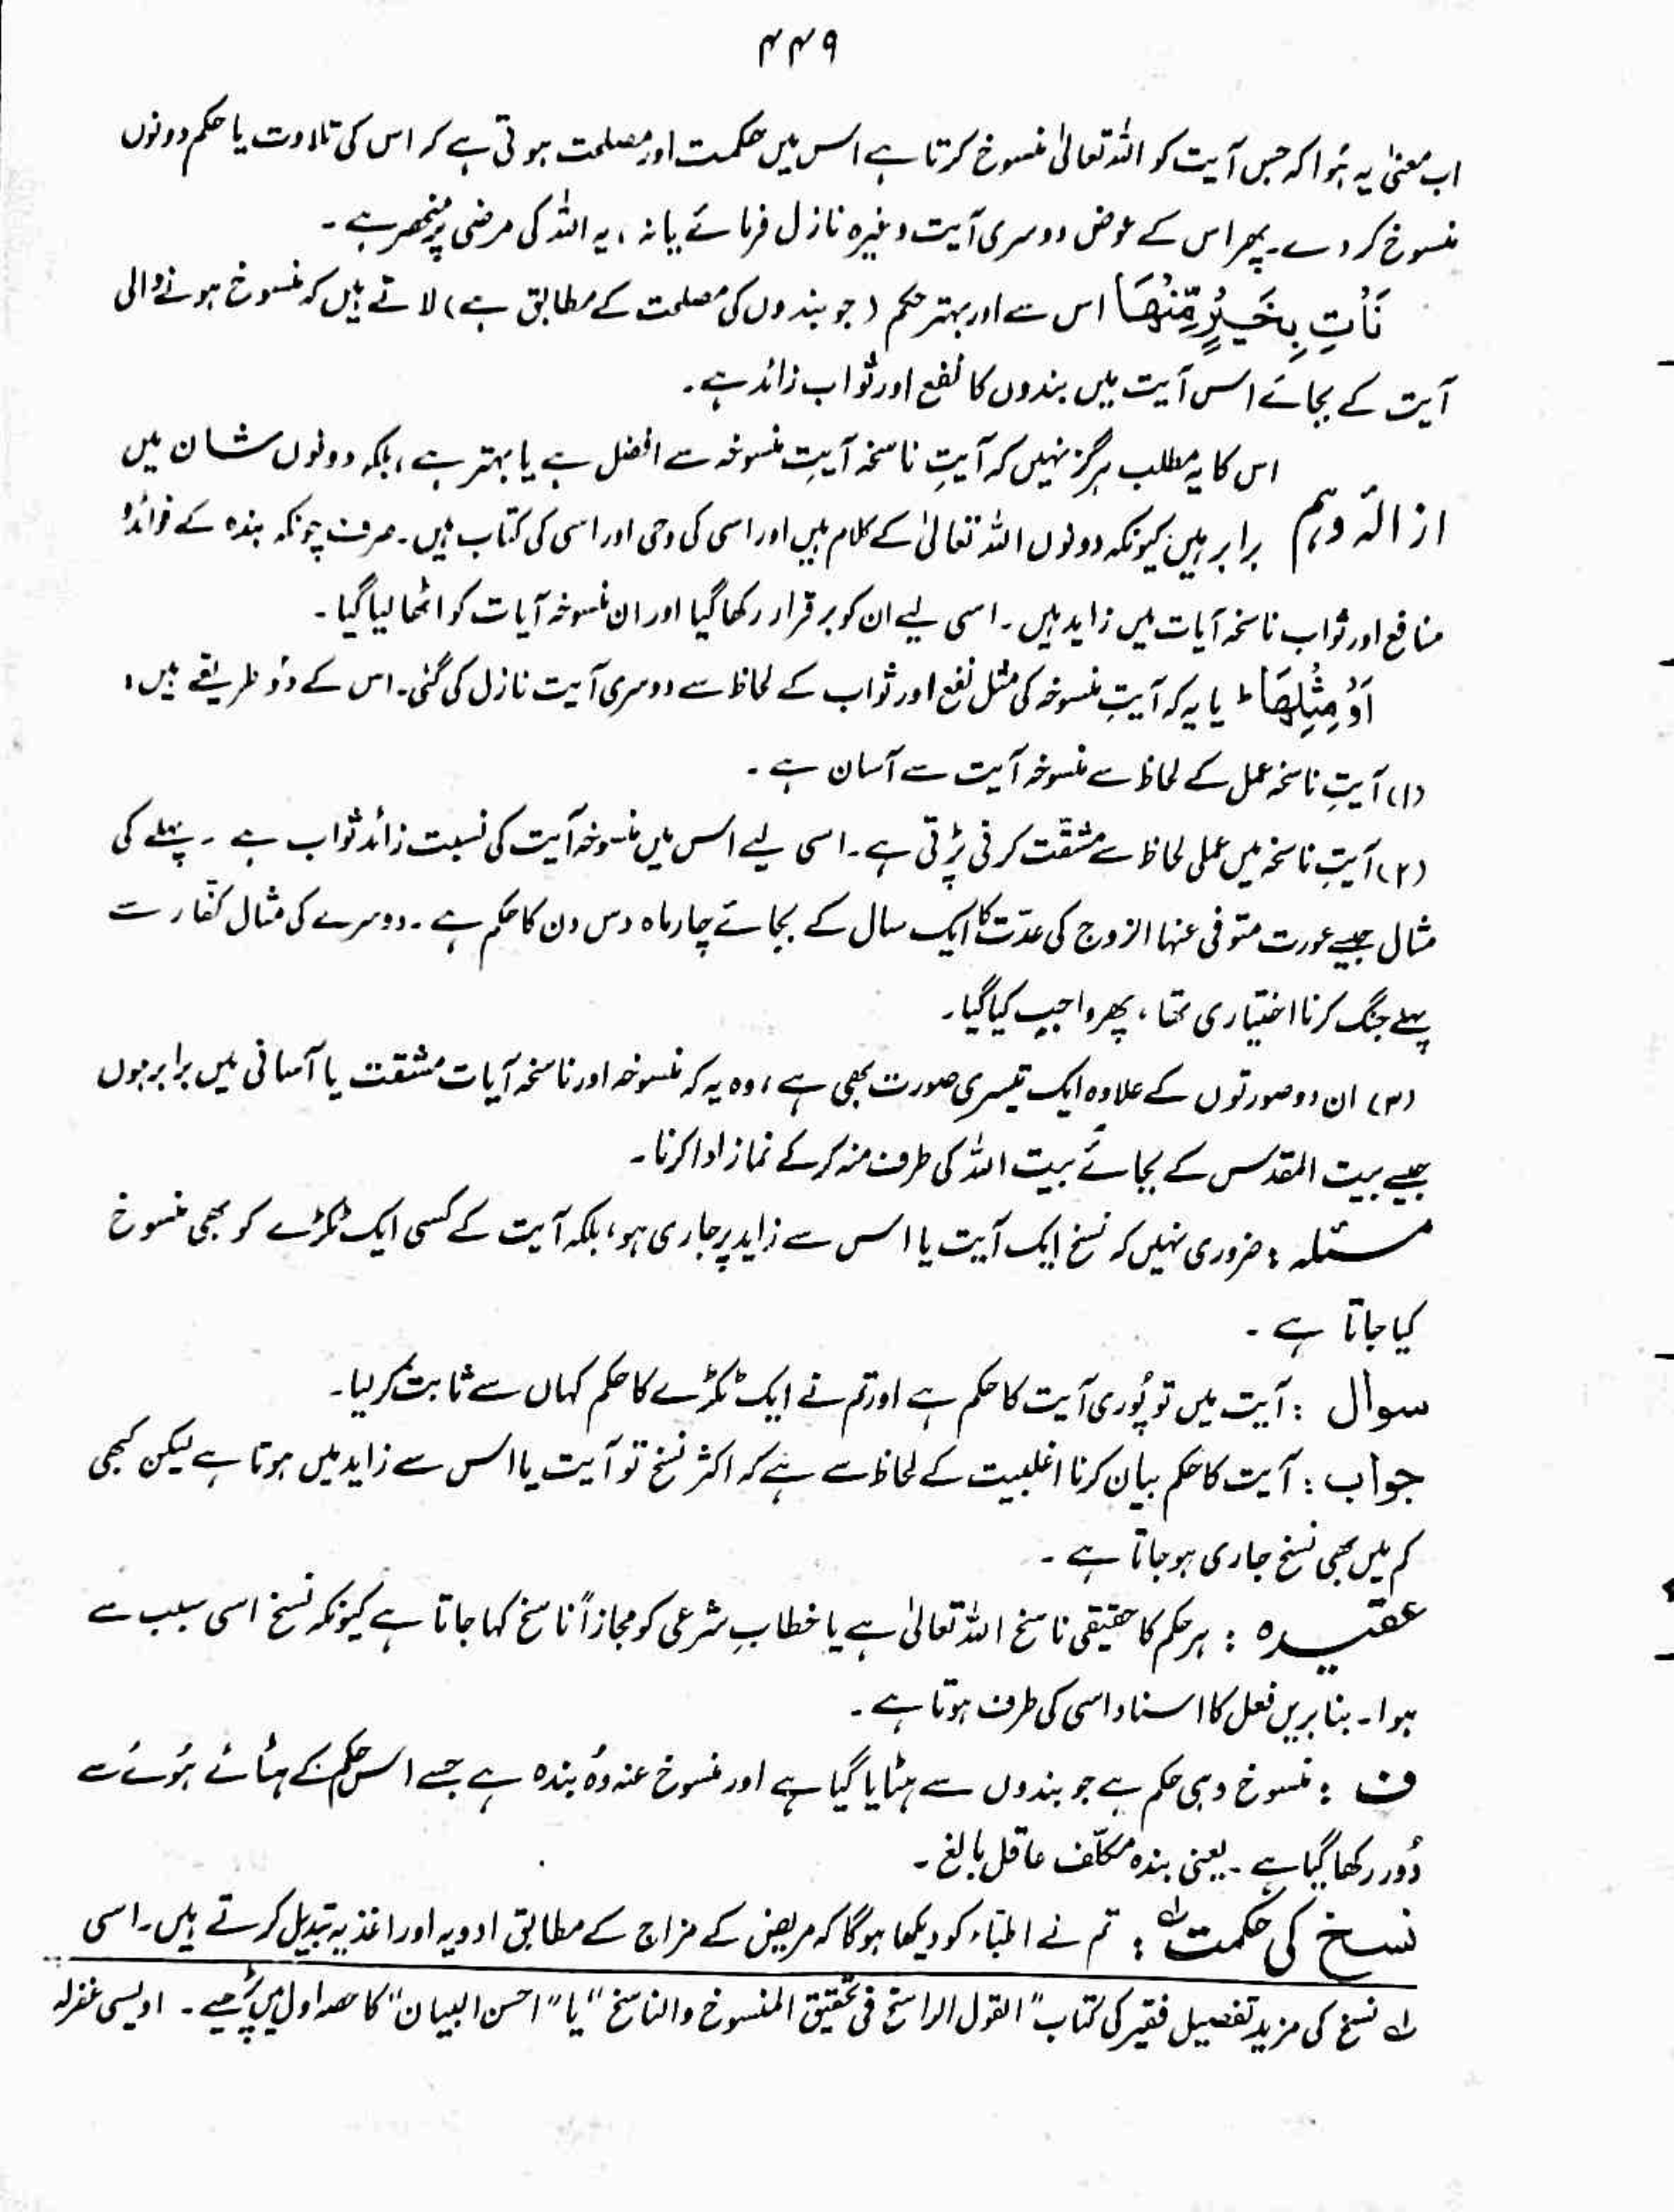 ۴۴۹
اب معنیٰ یہ ہُوا کہ جس آیت کو اللہ تعالیٰ منسوخ کرتا ہے اس میں حکمت اور مصلحت ہوتی ہے کہ اس کی تلاوت یا حکم دونوں
منسوخ کر دے۔ پھر اس کے عوض دوسری آیت وغیرہ نازل فرمائے یا نہ ، یہ اللہ کی مرضی پر منحصر ہے ۔
نَأْتِ بِخَيْرٍ مِّنْهَا اس سے اور بہتر حکم (جو بندوں کی مصلحت کے مطابق ہے) لاتے ہیں کہ منسوخ ہونے والی
آیت کے بجائے اس آیت میں بندوں کا نفع اور ثواب زائد ہے ۔
اس کا یہ مطلب ہرگز نہیں کہ آیتِ ناسخہ آیتِ منسوخہ سے افضل ہے یا بہتر ہے ، بلکہ دونوں شان میں
ازالۂ وہم برابر ہیں کیونکہ دونوں اللہ تعالیٰ کے کلام ہیں اور اسی کی وحی اور اسی کی کتاب ہیں۔ صرف چونکہ بندہ کے فوائد و
منافع اور ثواب ناسخہ آیات میں زاید ہیں ۔ اسی لیے ان کو برقرار رکھا گیا اور ان منسوخہ آیات کو اٹھا لیا گیا ۔
اَوْ مِثْلِهَا ط یا یہ کہ آیتِ منسوخہ کی مثل نفع اور ثواب کے لحاظ سے دوسری آیت نازل کی گئی۔ اس کے دو طریقے ہیں :
(۱) آیتِ ناسخہ عمل کے لحاظ سے منسوخہ آیت سے آسان ہے ۔
(۲) آیتِ ناسخہ میں عملی لحاظ سے مشقّت کرنی پڑتی ہے ۔ اسی لیے اس میں منسوخہ آیت کی نسبت زائد ثواب ہے ۔ پہلے کی
مثال جیسے عورت متوفی عنہا الزوج کی عدّت کا ایک سال کے بجائے چار ماہ دس دن کا حکم ہے ۔ دوسرے کی مثال کفّار سے
پہلے جنگ کرنا اختیاری تھا ، پھر واجب کیا گیا ۔
(۳) ان دو صورتوں کے علاوہ ایک تیسری صورت بھی ہے ، وہ یہ کہ منسوخہ اور ناسخہ آیات مشقت یا آسانی میں برابر ہوں
جیسے بیت المقدس کے بجائے بیت اللہ کی طرف منہ کر کے نماز ادا کرنا ۔
مسئلہ : ضروری نہیں کہ نسخ ایک آیت یا اس سے زاید پر جاری ہو ، بلکہ آیت کے کسی ایک ٹکڑے کو بھی منسوخ
کیا جاتا ہے ۔
سوال : آیت میں تو پُوری آیت کا حکم ہے اور تم نے ایک ٹکڑے کا حکم کہاں سے ثابت کر لیا ۔
جواب : آیت کا حکم بیان کرنا اغلبیت کے لحاظ سے ہے کہ اکثر نسخ تو آیت یا اس سے زاید میں ہوتا ہے لیکن کبھی
کم میں بھی نسخ جاری ہو جاتا ہے ۔
عقیدہ : ہر حکم کا حقیقی ناسخ اللہ تعالیٰ ہے یا خطابِ شرعی کو مجازاً ناسخ کہا جاتا ہے کیونکہ نسخ اسی سبب سے
ہوا ۔ بنا بریں فعل کا اسناد اسی کی طرف ہوتا ہے ۔
ف : منسوخ وہی حکم ہے جو بندوں سے ہٹایا گیا ہے اور منسوخ عنہ وُہ بندہ ہے جسے اس حکم کے ہٹائے ہُوئے سے
دُور رکھا گیا ہے ۔ یعنی بندہ مکلّف عاقل بالغ ۔
نسخ کی حکمت لہ : تم نے اطبّاء کو دیکھا ہوگا کہ مریض کے مزاج کے مطابق ادویہ اور اغذیہ تبدیل کرتے ہیں ۔ اسی
لہ نسخ کی مزید تفصیل فقیر کی کتاب "القول الراسخ فی تحقیق المنسوخ والناسخ" یا "احسن البیان" کا حصہ اول میں پڑھیے ۔ اویسی غفرلہ